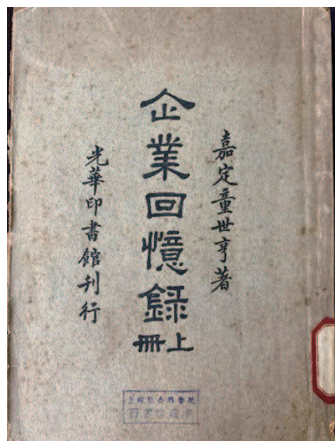 嘉定童世亨著
企業回憶錄
上冊
光華印書館刊行